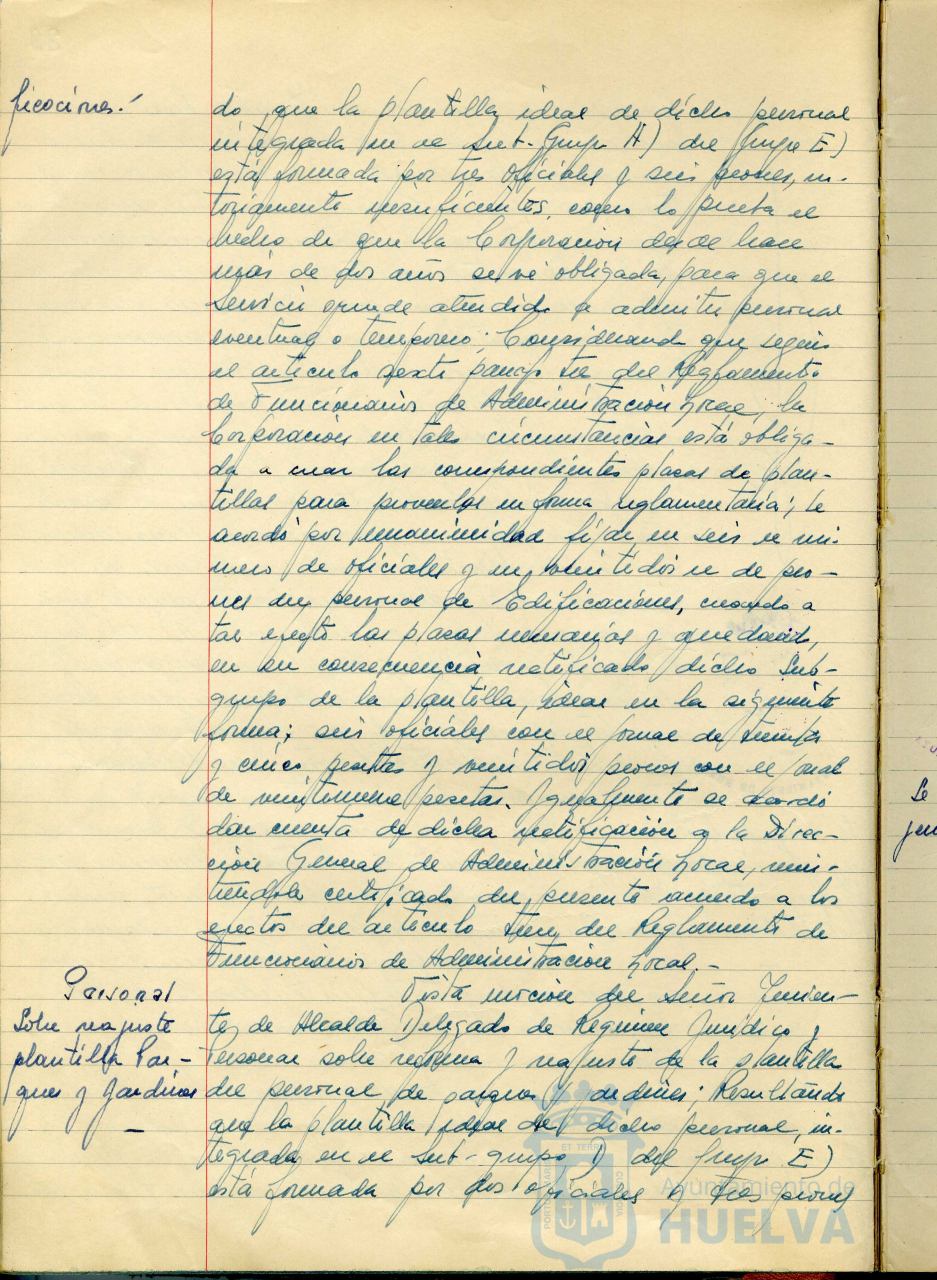 ficaciones.-
do que la plantilla ideal de dicho personal
integrada en el sub-Grupo H) del Grupo E)
está formada por tres oficiales y seis peones, no-
toriamente insuficientes, como lo prueba el
hecho de que la Corporación desde hace
más de dos años se vé obligada, para que el
servicio quede atendido a admitir personal
eventual o temporero; Considerando que según
el artículo sexto del Reglamento
de Funcionarios de Administración Local, la
Corporación en tales circunstancias está obliga-
da a crear las correspondientes plazas de plan-
tillas para proveerlas en forma reglamentaria; se
acordó por unanimidad fijar en seis el nú-
mero de oficiales y en veintidós el de peo-
nes del personal de Edificaciones, creando a
tal efecto las plazas necesarias y quedando,
en su consecuencia, rectificado dicho Sub-
grupo de la plantilla ideal en la siguiente
forma; seis oficiales con el jornal de treinta
y cinco pesetas y veintidós peones con el jornal
de veintinueve pesetas. Igualmente se acordó
dar cuenta de dicha rectificación a la Direc-
ción General de Administración Local, remi-
tiéndole certificado del presente acuerdo a los
efectos del artículo del Reglamento de
Funcionarios de Administración Local.-
Personal
Sobre reajuste
plantilla Par-
ques y Jardines
-
Vista moción del Señor Tenien-
te de Alcalde Delegado de Régimen Jurídico y
Personal sobre reforma y reajuste de la plantilla
del personal de parques y jardines; Resultando
que la plantilla ideal de dicho personal, in-
tegrada en el sub-grupo del Grupo E)
está formada por dos oficiales y tres peones
Se
jun
ET TERRE
PORTUS MARIS
CUSTODIA
Ayuntamiento de
HUELVA